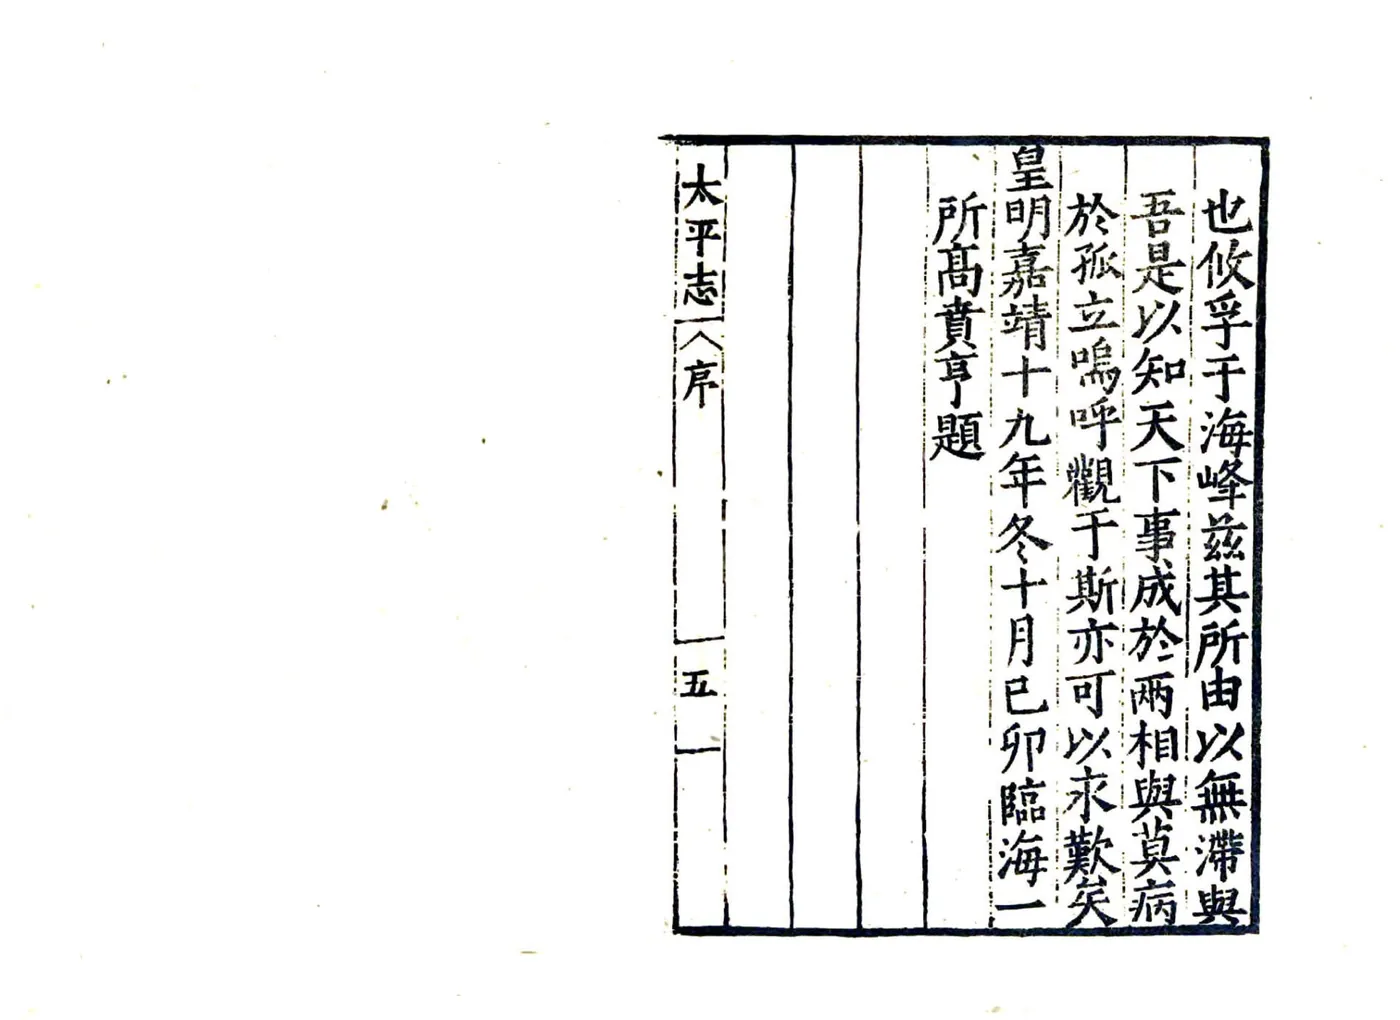 也攸孚于海峰茲其所由以無滯與
吾是以知天下事成於兩相與莫病
於孤立嗚呼觀于斯亦可以求歎矣
皇明嘉靖十九年冬十月已卯臨海一
所髙賁亨題
太平志
序
五